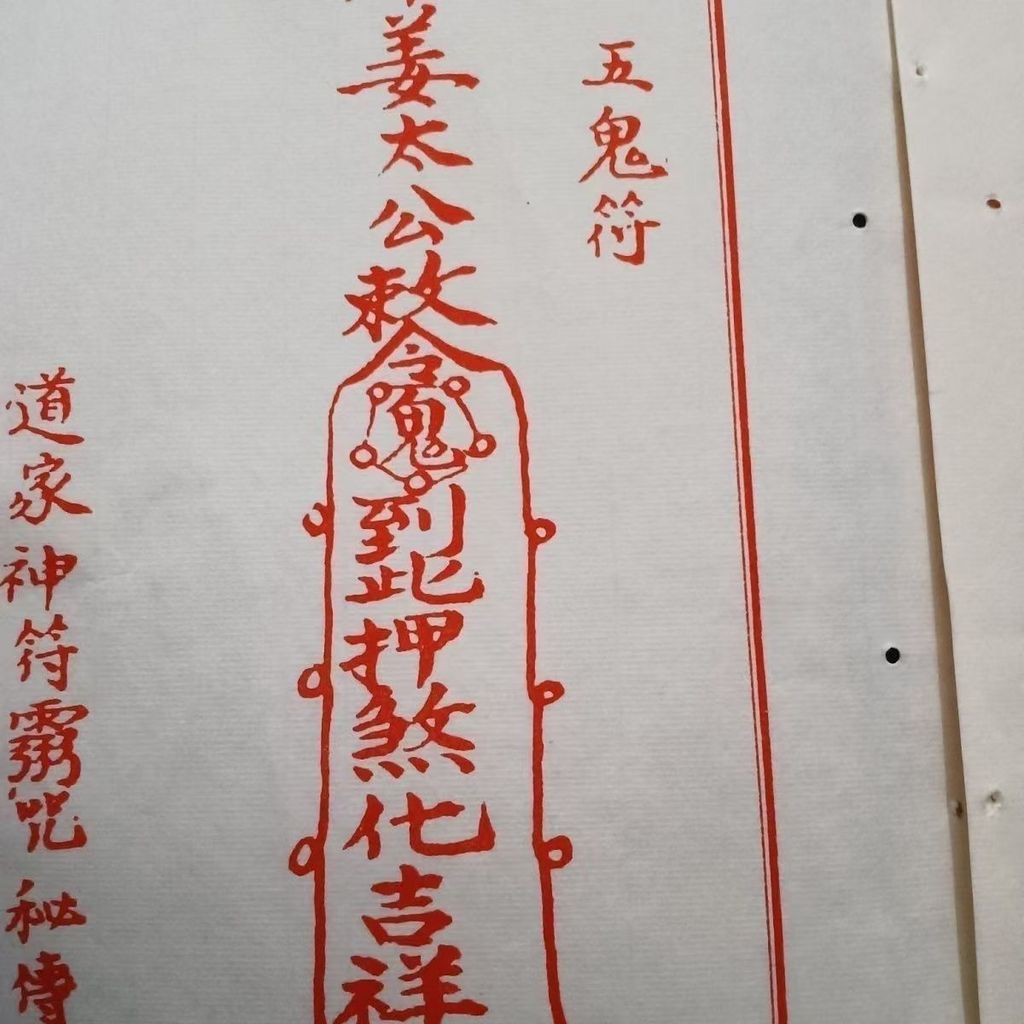 五鬼符
姜太公敕令
鬼
到此押煞化吉祥
道家神符靈咒秘傳